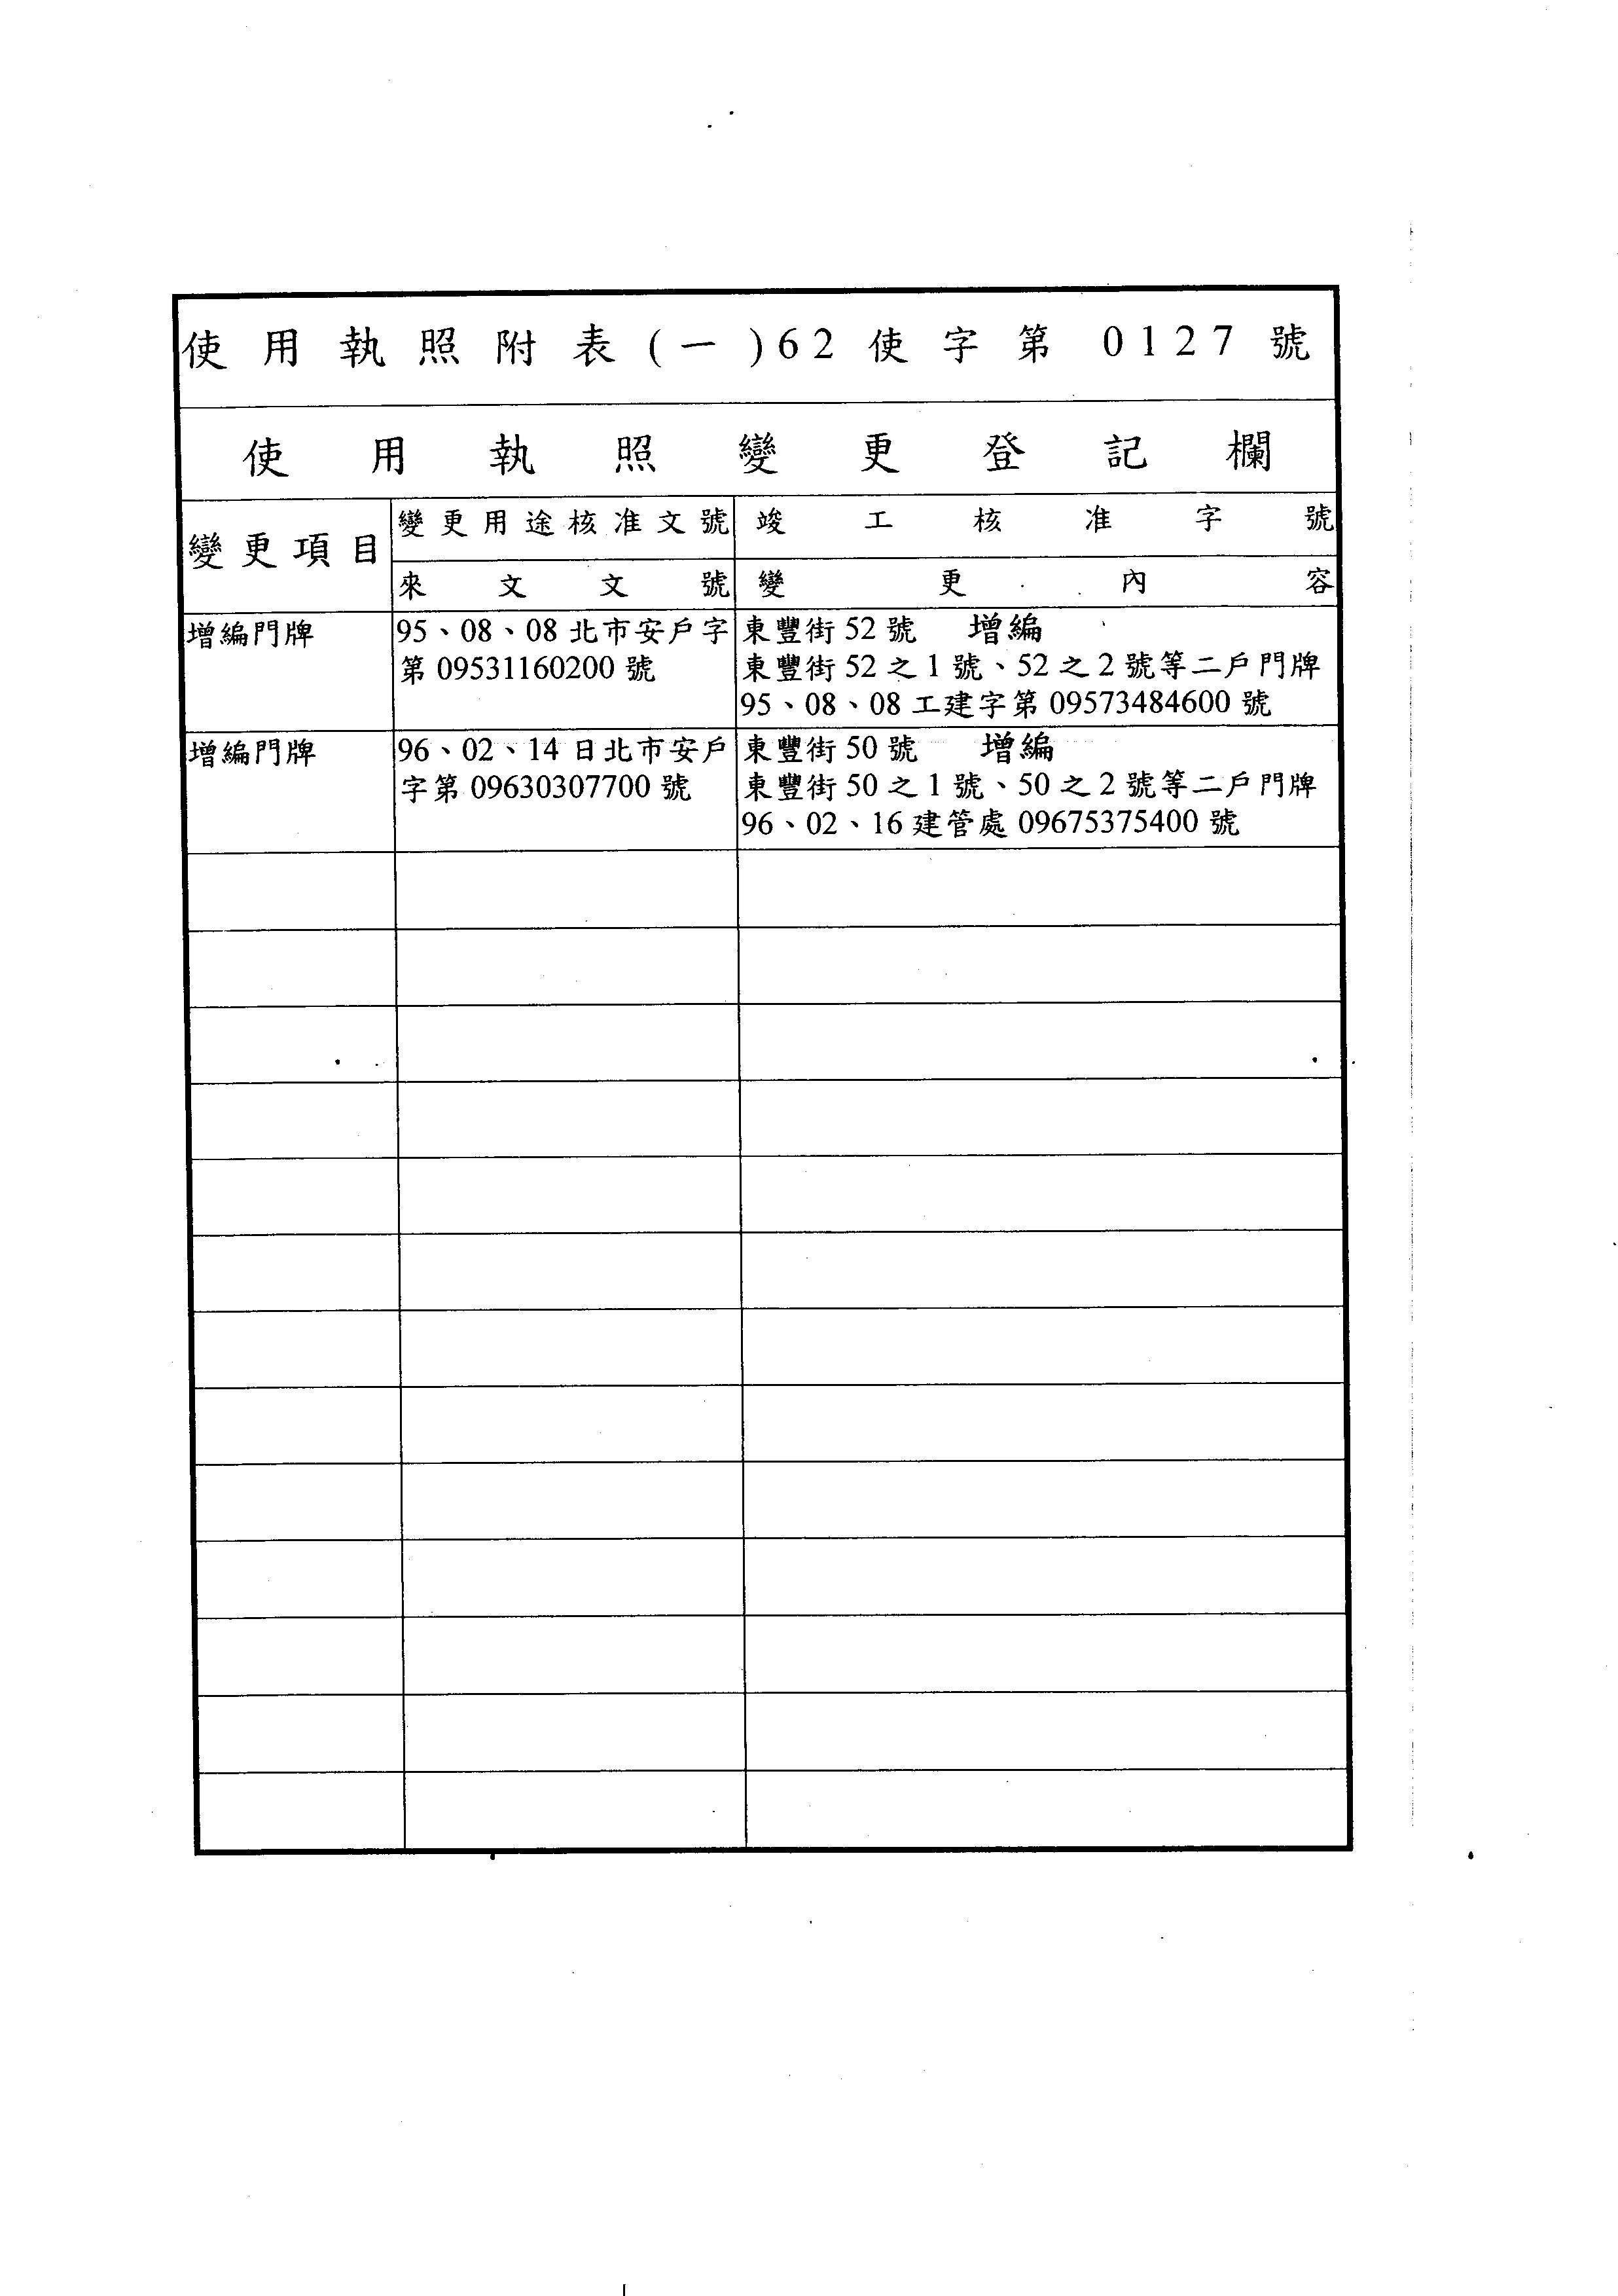 使用執照附表(一)62使字第0127號
使用執照變更登記欄
變更項目
變更用途核准文號
竣工核准字號
來文文號
變更內容
增編門牌
95、08、08北市安戶字
第09531160200號
東豐街52號 增編
東豐街52之1號、52之2號等二戶門牌
95、08、08工建字第09573484600號
增編門牌
96、02、14日北市安戶
字第09630307700號
東豐街50號 增編
東豐街50之1號、50之2號等二戶門牌
96、02、16建管處09675375400號